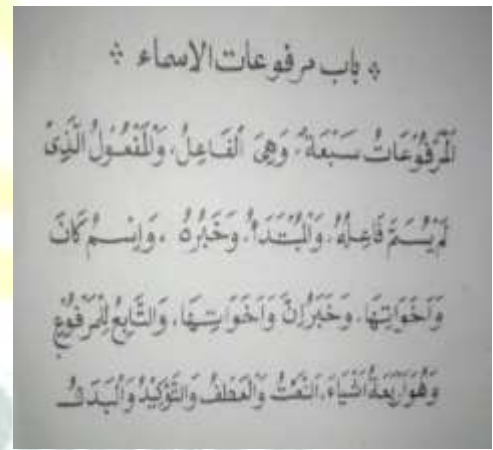 باب مرفوعات الاسماء
الْمَرْفُوْعَاتُ سَبْعَةٌ، وَهِيَ الْفَاعِلُ، وَالْمَفْعُوْلُ الَّذِىْ
لَمْ يُسَمَّ فَاعِلُهُ، وَالْمُبْتَدَأُ، وَخَبَرُهُ، وَاِسْمُ كَانَ
وَاَخَوَاتِهَا، وَخَبَرُ اِنَّ وَاَخَوَاتِهَا، وَالتَّابِعُ لِلْمَرْفُوْعِ
وَهُوَ اَرْبَعَةُ اَشْيَاءَ، اَلنَّعْتُ وَالْعَطْفُ وَالتَّوْكِيْدُ وَالْبَدَلُ